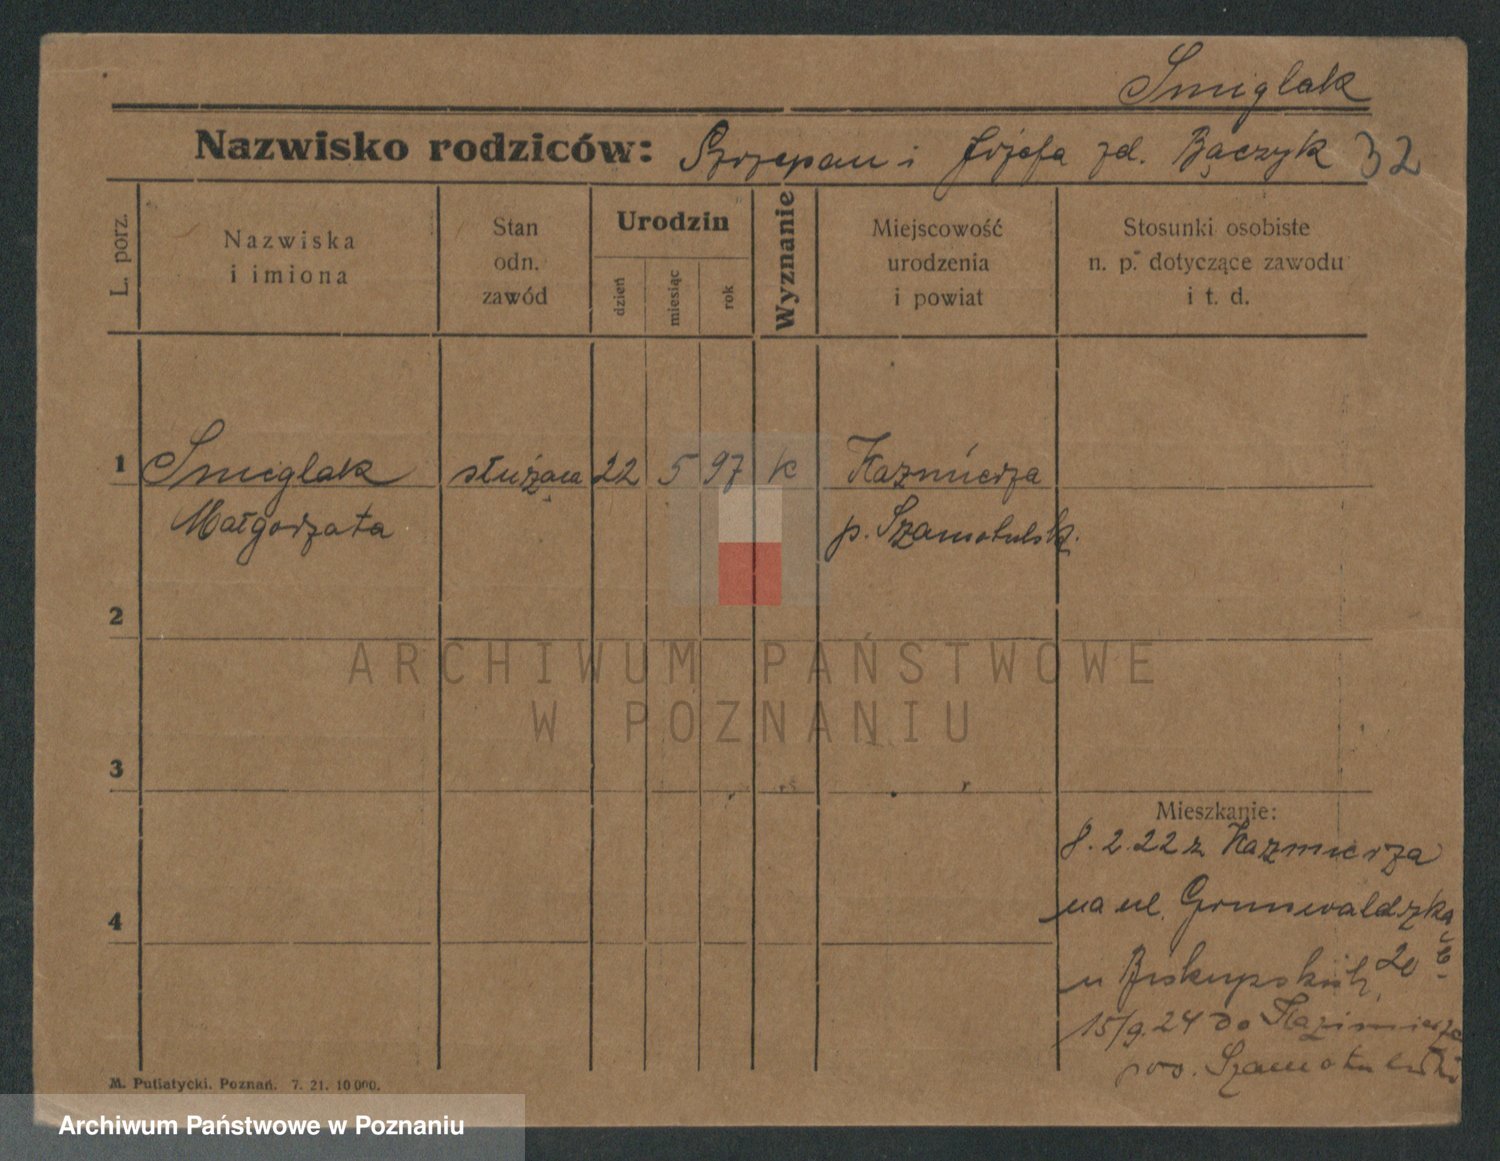 Smiglak
Nazwisko rodziców: Szczepan i Józefa zd. Bączyk 32
L. porz.
Nazwiska
i imiona
Stan
odn.
zawód
Urodzin
dzień
miesiąc
rok
Wyznanie
Miejscowość
urodzenia
i powiat
Stosunki osobiste
n. p. dotyczące zawodu
i t. d.
1 Smiglak służąca 22 5 97 k Kazmierza
Małgorzata p. Szamotulsk.
2
ARCHIWUM PAŃSTWOWE
W POZNANIU
3
Mieszkanie:
8.2.22 z Kazmierza
4
na ul. Grunwaldzką
u Biskupskich 20
15/9.24 do Kazimierza
pow. Szamotulski
M. Putiatycki. Poznań. 7. 21. 10 000.
Archiwum Państwowe w Poznaniu